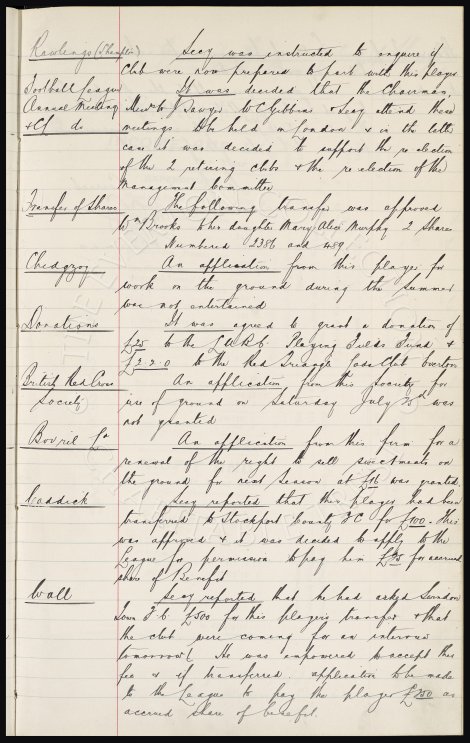 Rawlings (S'hampton) Secy was instructed to enquire if
Club were now prepared to part with this player
Football League It was decided that the Chairman,
Annual Meeting Messrs Sawyer W C Gibbins & Secy attend these
& Cl do meetings to be held in London & in the latter
case it was decided to support the re election
of the 2 retiring clubs & the re election of the
Management Committee
Transfer of Shares The following transfer was approved
Wm Brooks to his daughter Mary Alice Murphy 2 Shares
Numbered 2386 and 489.
Chedgzoy An application from this player for
work on the ground during the summer
was not entertained
Donations It was agreed to grant a donation of
£25 to the Playing Fields Fund &
£2.2.0 to the Red Triangle Cafe Club Everton
British Red Cross An application from this Society for
Society use of ground on Saturday July 25th was
not granted
Bovril Co An application from this firm for a
renewal of the right to sell sweetmeats on
the ground for next season at was granted
Caddick Secy reported that this player had been
transferred to Stockport County F C for £100. This
was approved & it was decided to apply to the
League for permission to pay him for accrued
share of Benefit
Wall Secy reported that he had asked Swindon
Town F.C. £500 for this player's transfer & that
the club were coming for an interview
tomorrow. He was empowered to accept this
fee & if transferred, application be made
to the League to pay the player £250 as
accrued share of benefit.